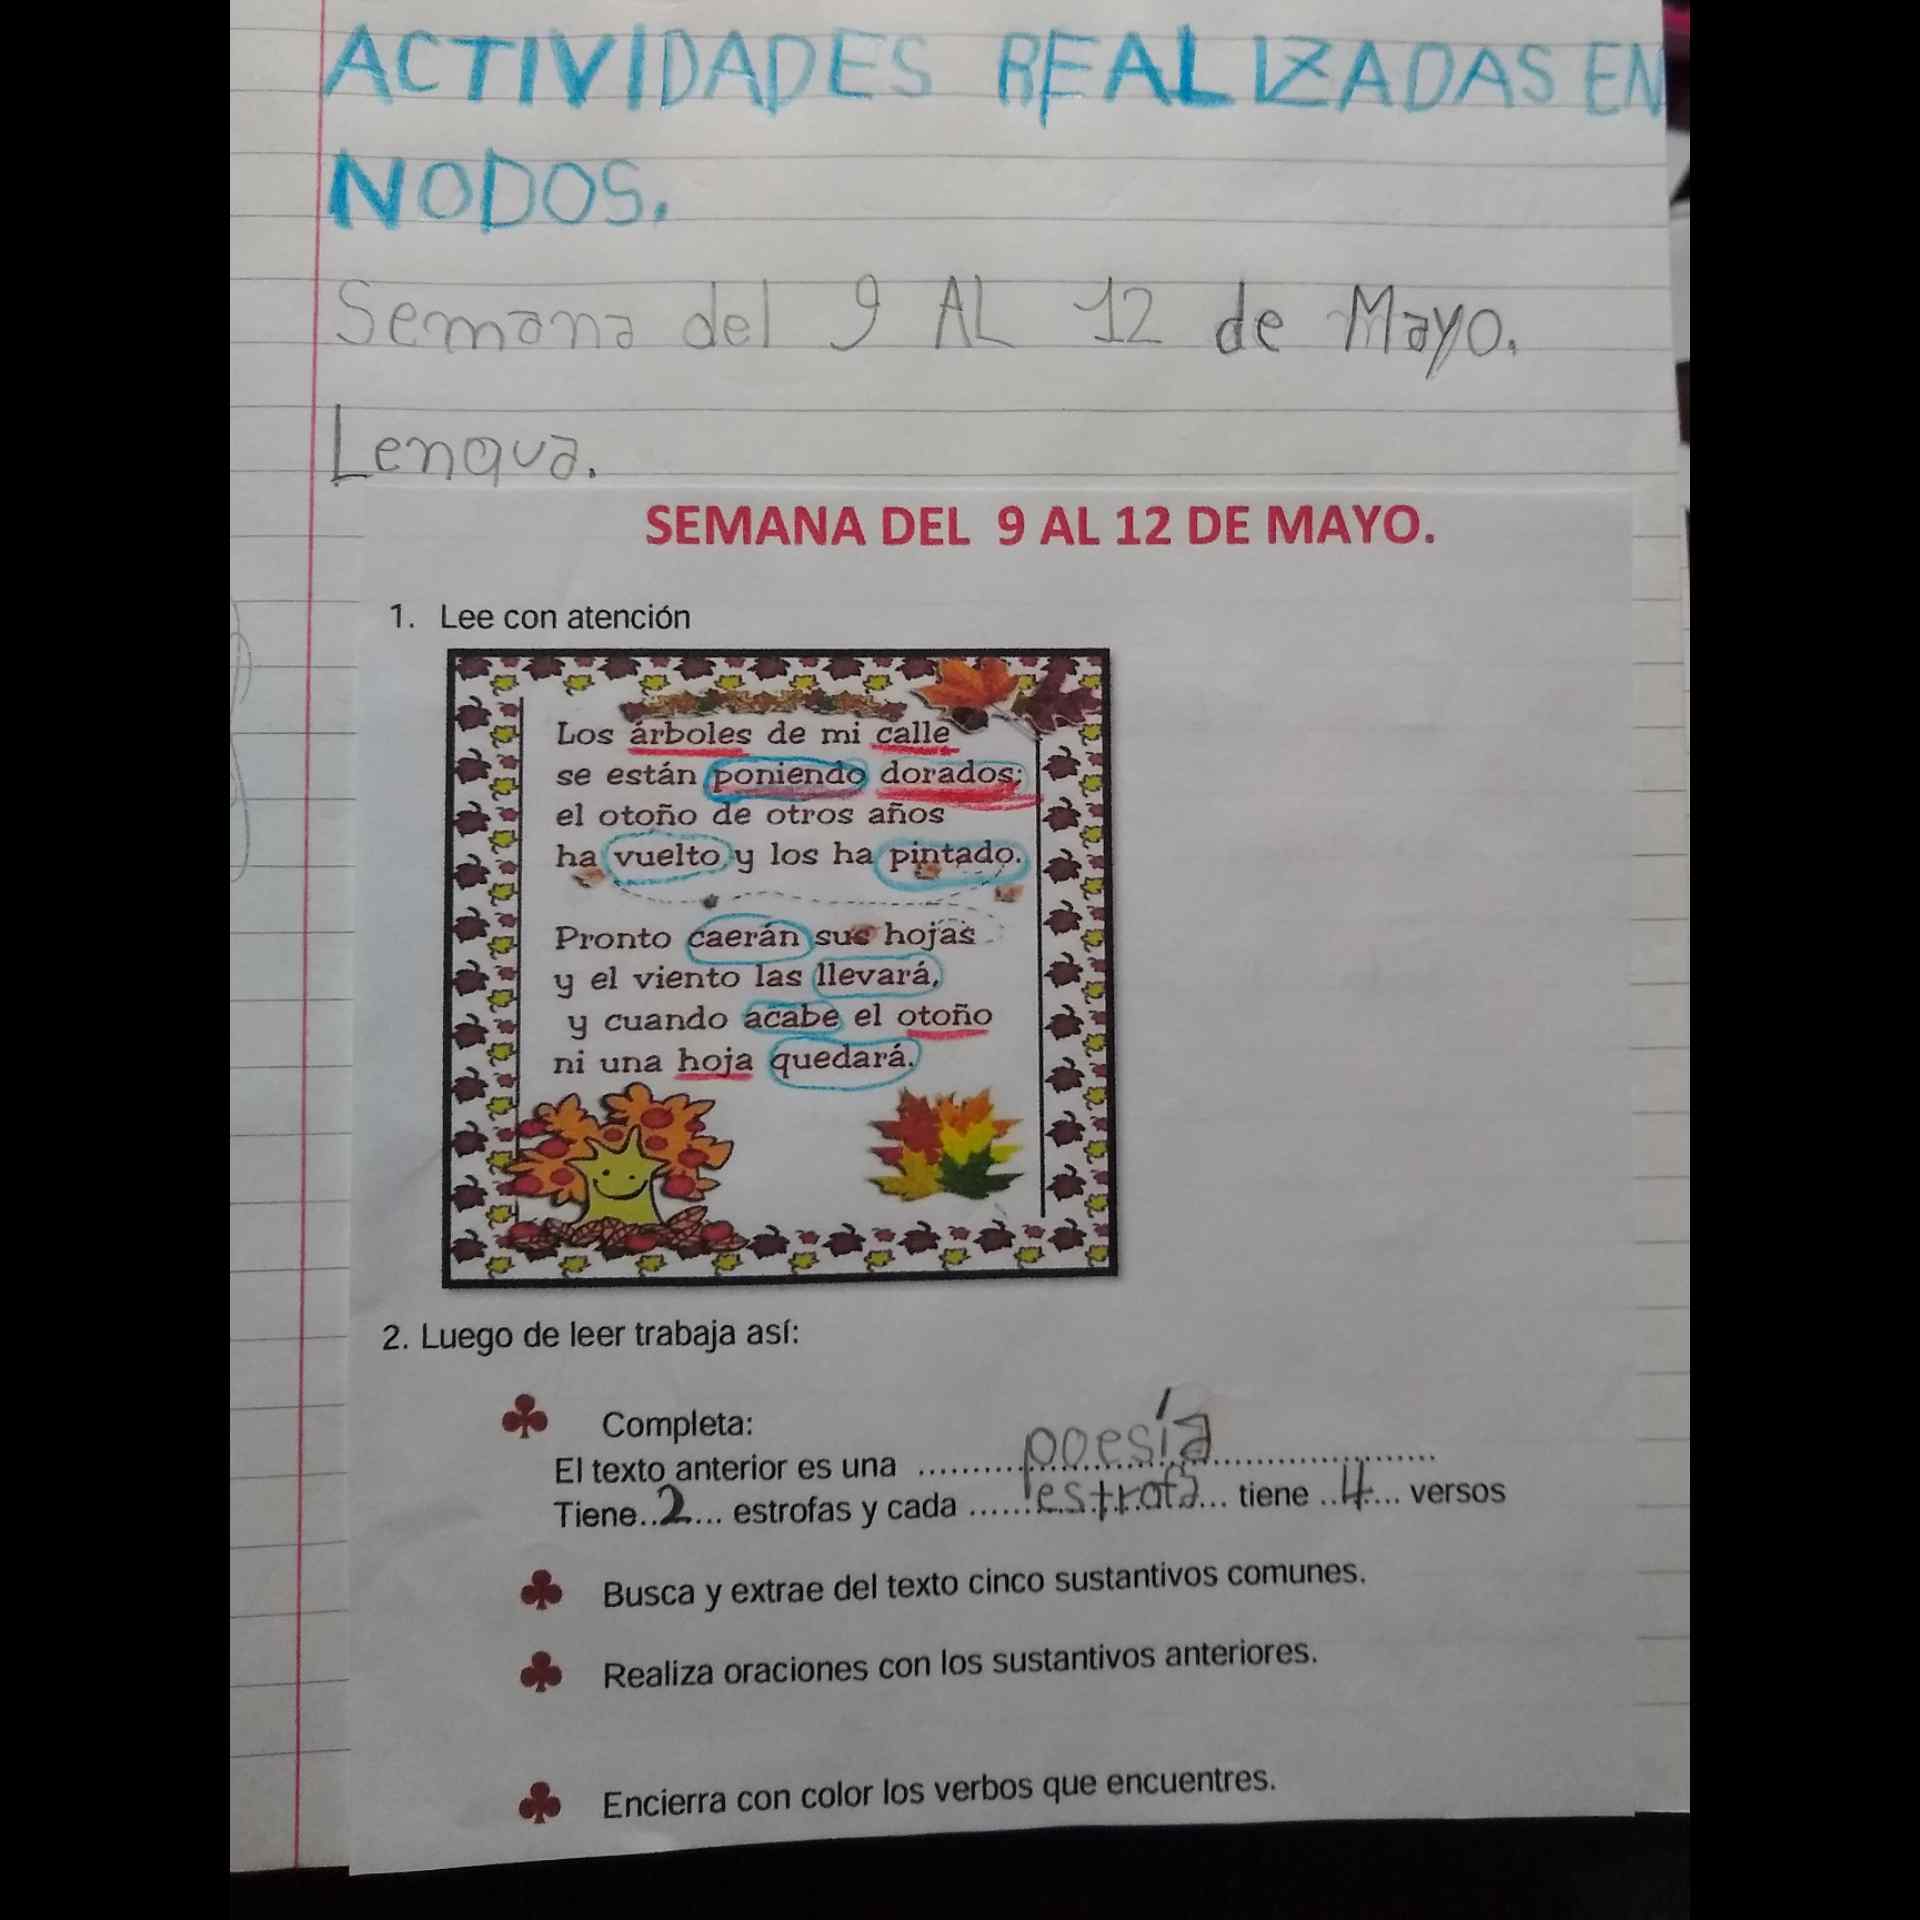 ACTIVIDADES REALIZADAS EN
NODOS.
Semana del 9 AL 12 de Mayo.
Lengua.
SEMANA DEL 9 AL 12 DE MAYO.
1. Lee con atención
Los árboles de mi calle
se están poniendo dorados;
el otoño de otros años
ha vuelto y los ha pintado.
Pronto caerán sus hojas
y el viento las llevará,
y cuando acabe el otoño
ni una hoja quedará.
2. Luego de leer trabaja así:
Completa:
El texto anterior es una ..........poesía....................
Tiene..2... estrofas y cada ......estrofa... tiene ..4... versos
Busca y extrae del texto cinco sustantivos comunes.
Realiza oraciones con los sustantivos anteriores.
Encierra con color los verbos que encuentres.